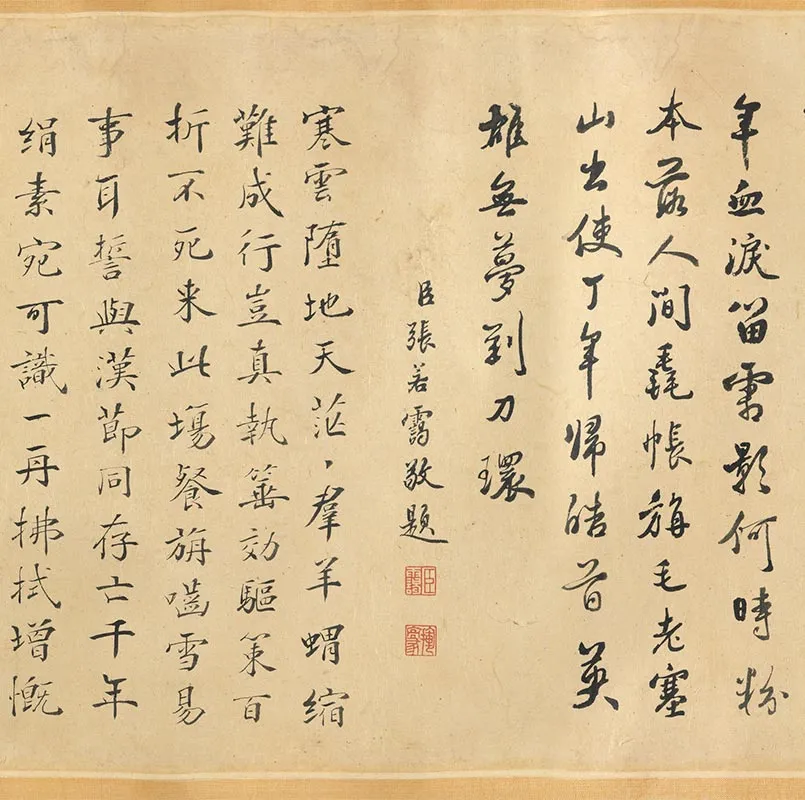 年血淚留影何時粉
本落人間毳帳旃毛老塞
山出使丁年歸皓首英
雄無夢到刀環
臣張若靄敬題
寒雲墮地天茫、羣羊蝟縮
難成行豈真執箠効驅策百
折不死来此場餐旃嚙雪易
事耳誓與漢節同存亡千年
絹素宛可識一再拂拭增慨